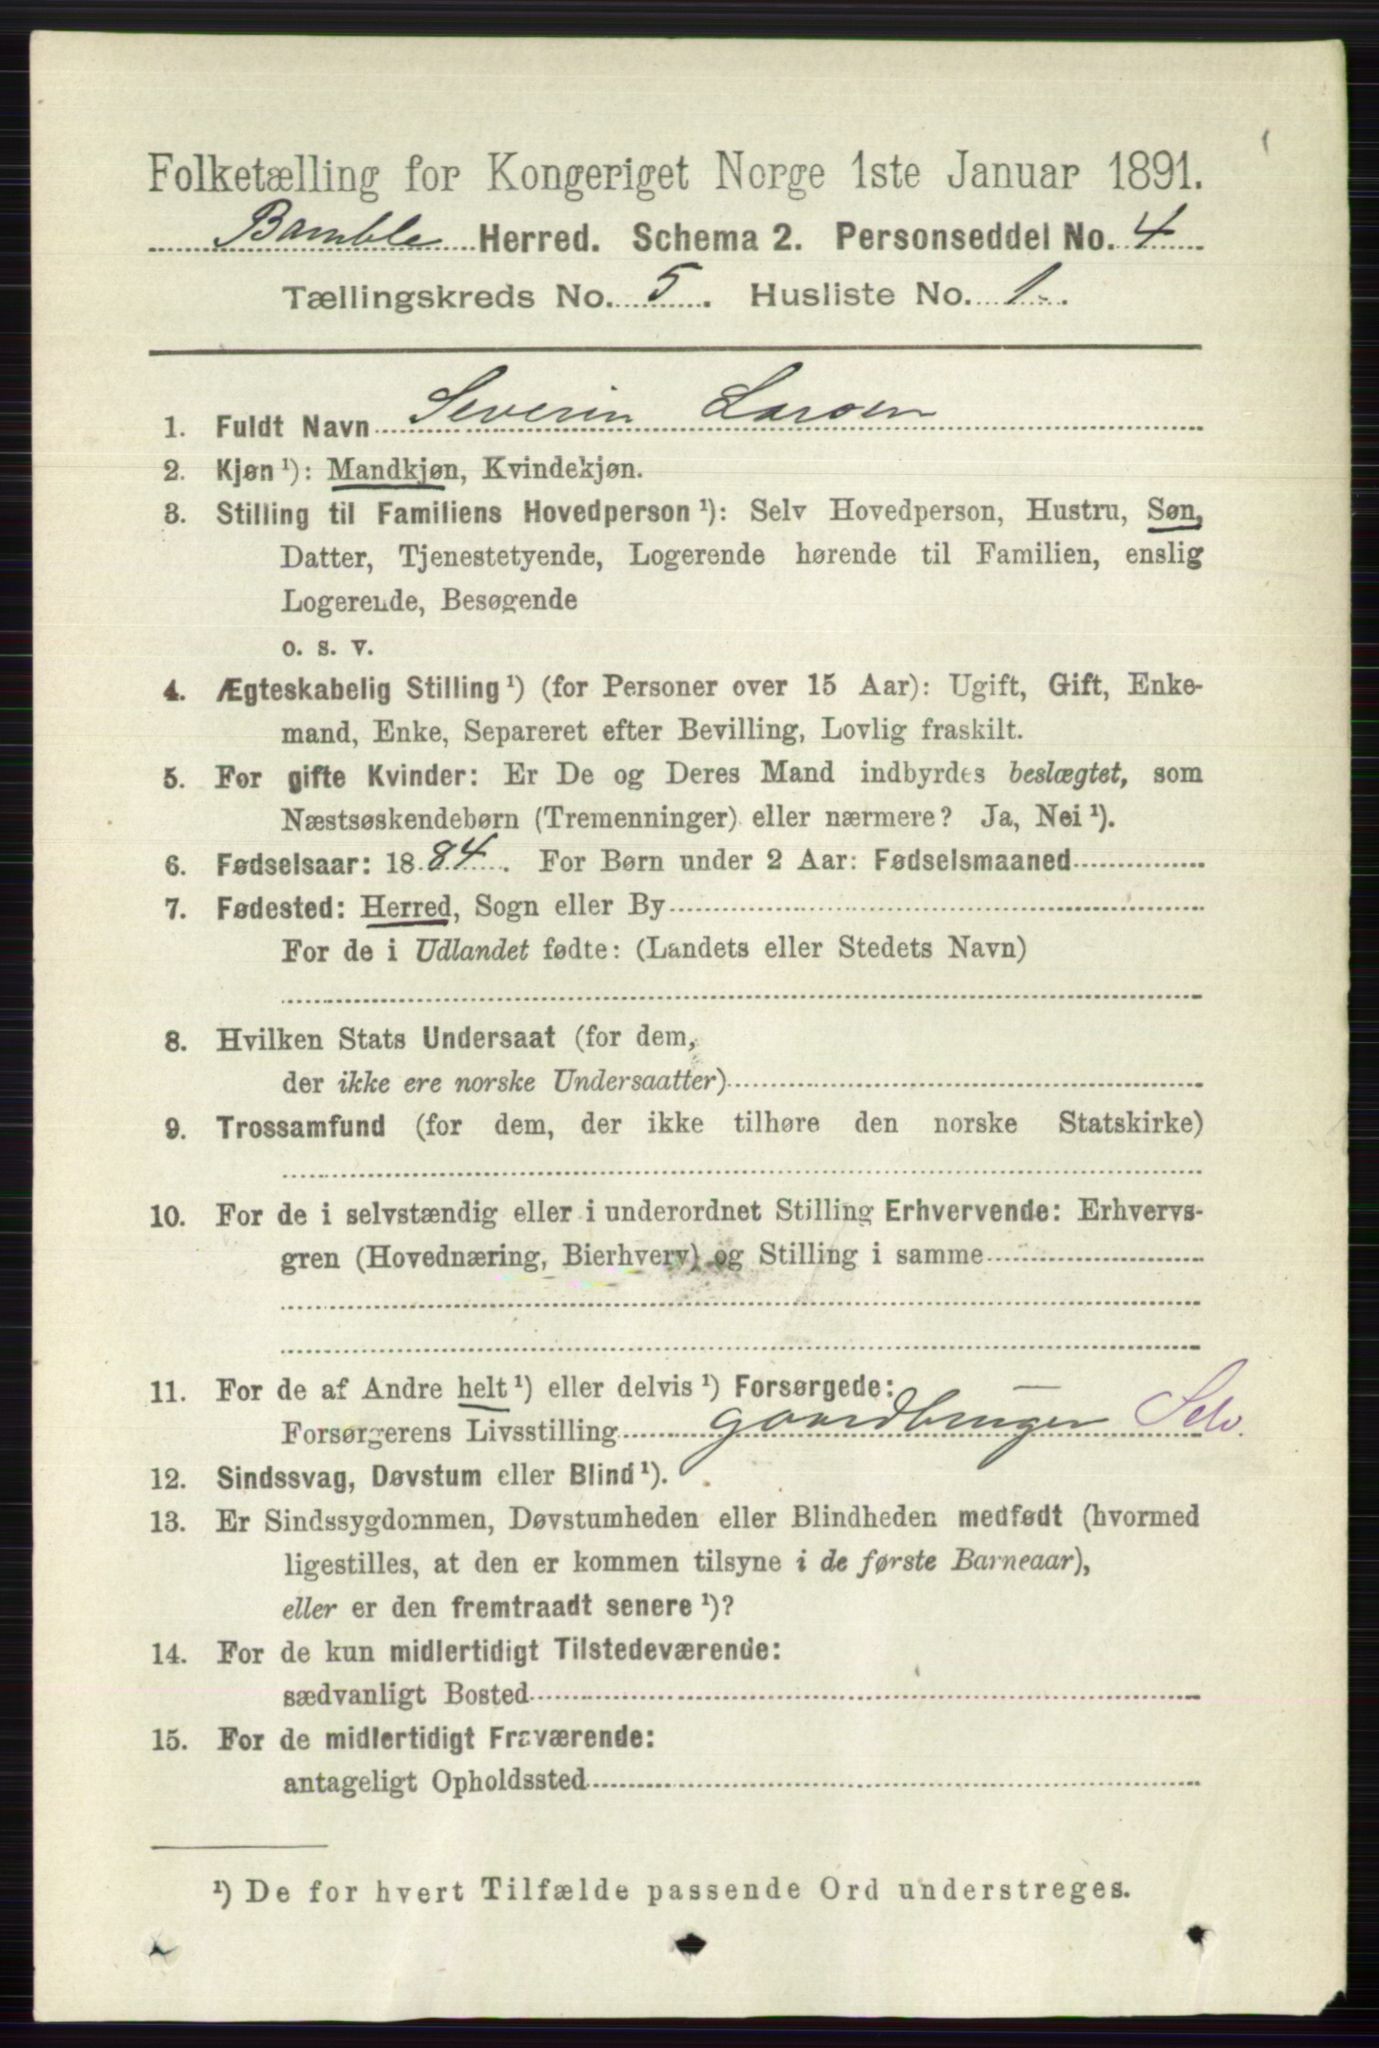 Folketælling for Kongeriget Norge 1ste Januar 1891.
Bamble Herred. Schema 2. Personseddel No. 4
Tællingskreds No. 5. Husliste No. 1.
1. Fuldt Navn Severin Larsen
2. Kjøn¹): Mandkjøn, Kvindekjøn.
3. Stilling til Familiens Hovedperson¹): Selv Hovedperson, Hustru, Søn,
Datter, Tjenestetyende, Logerende hørende til Familien, enslig
Logerende, Besøgende
o. s. v.
4. Ægteskabelig Stilling¹) (for Personer over 15 Aar): Ugift, Gift, Enke-
mand, Enke, Separeret efter Bevilling, Lovlig fraskilt.
5. For gifte Kvinder: Er De og Deres Mand indbyrdes beslægtet, som
Næstsøskendebørn (Tremenninger) eller nærmere? Ja, Nei¹).
6. Fødselsaar: 1884. For Børn under 2 Aar: Fødselsmaaned
7. Fødested: Herred, Sogn eller By
For de i Udlandet fødte: (Landets eller Stedets Navn)
8. Hvilken Stats Undersaat (for dem,
der ikke ere norske Undersaatter)
9. Trossamfund (for dem, der ikke tilhøre den norske Statskirke)
10. For de i selvstændig eller i underordnet Stilling Erhvervende: Erhvervs-
gren (Hovednæring, Bierhverv) og Stilling i samme
11. For de af Andre helt¹) eller delvis¹) Forsørgede:
Forsørgerens Livsstilling gaardbruger Selv.
12. Sindssvag, Døvstum eller Blind¹).
13. Er Sindssygdommen, Døvstumheden eller Blindheden medfødt (hvormed
ligestilles, at den er kommen tilsyne i de første Barneaar),
eller er den fremtraadt senere¹)?
14. For de kun midlertidigt Tilstedeværende:
sædvanligt Bosted
15. For de midlertidigt Fraværende:
antageligt Opholdssted
¹) De for hvert Tilfælde passende Ord understreges.